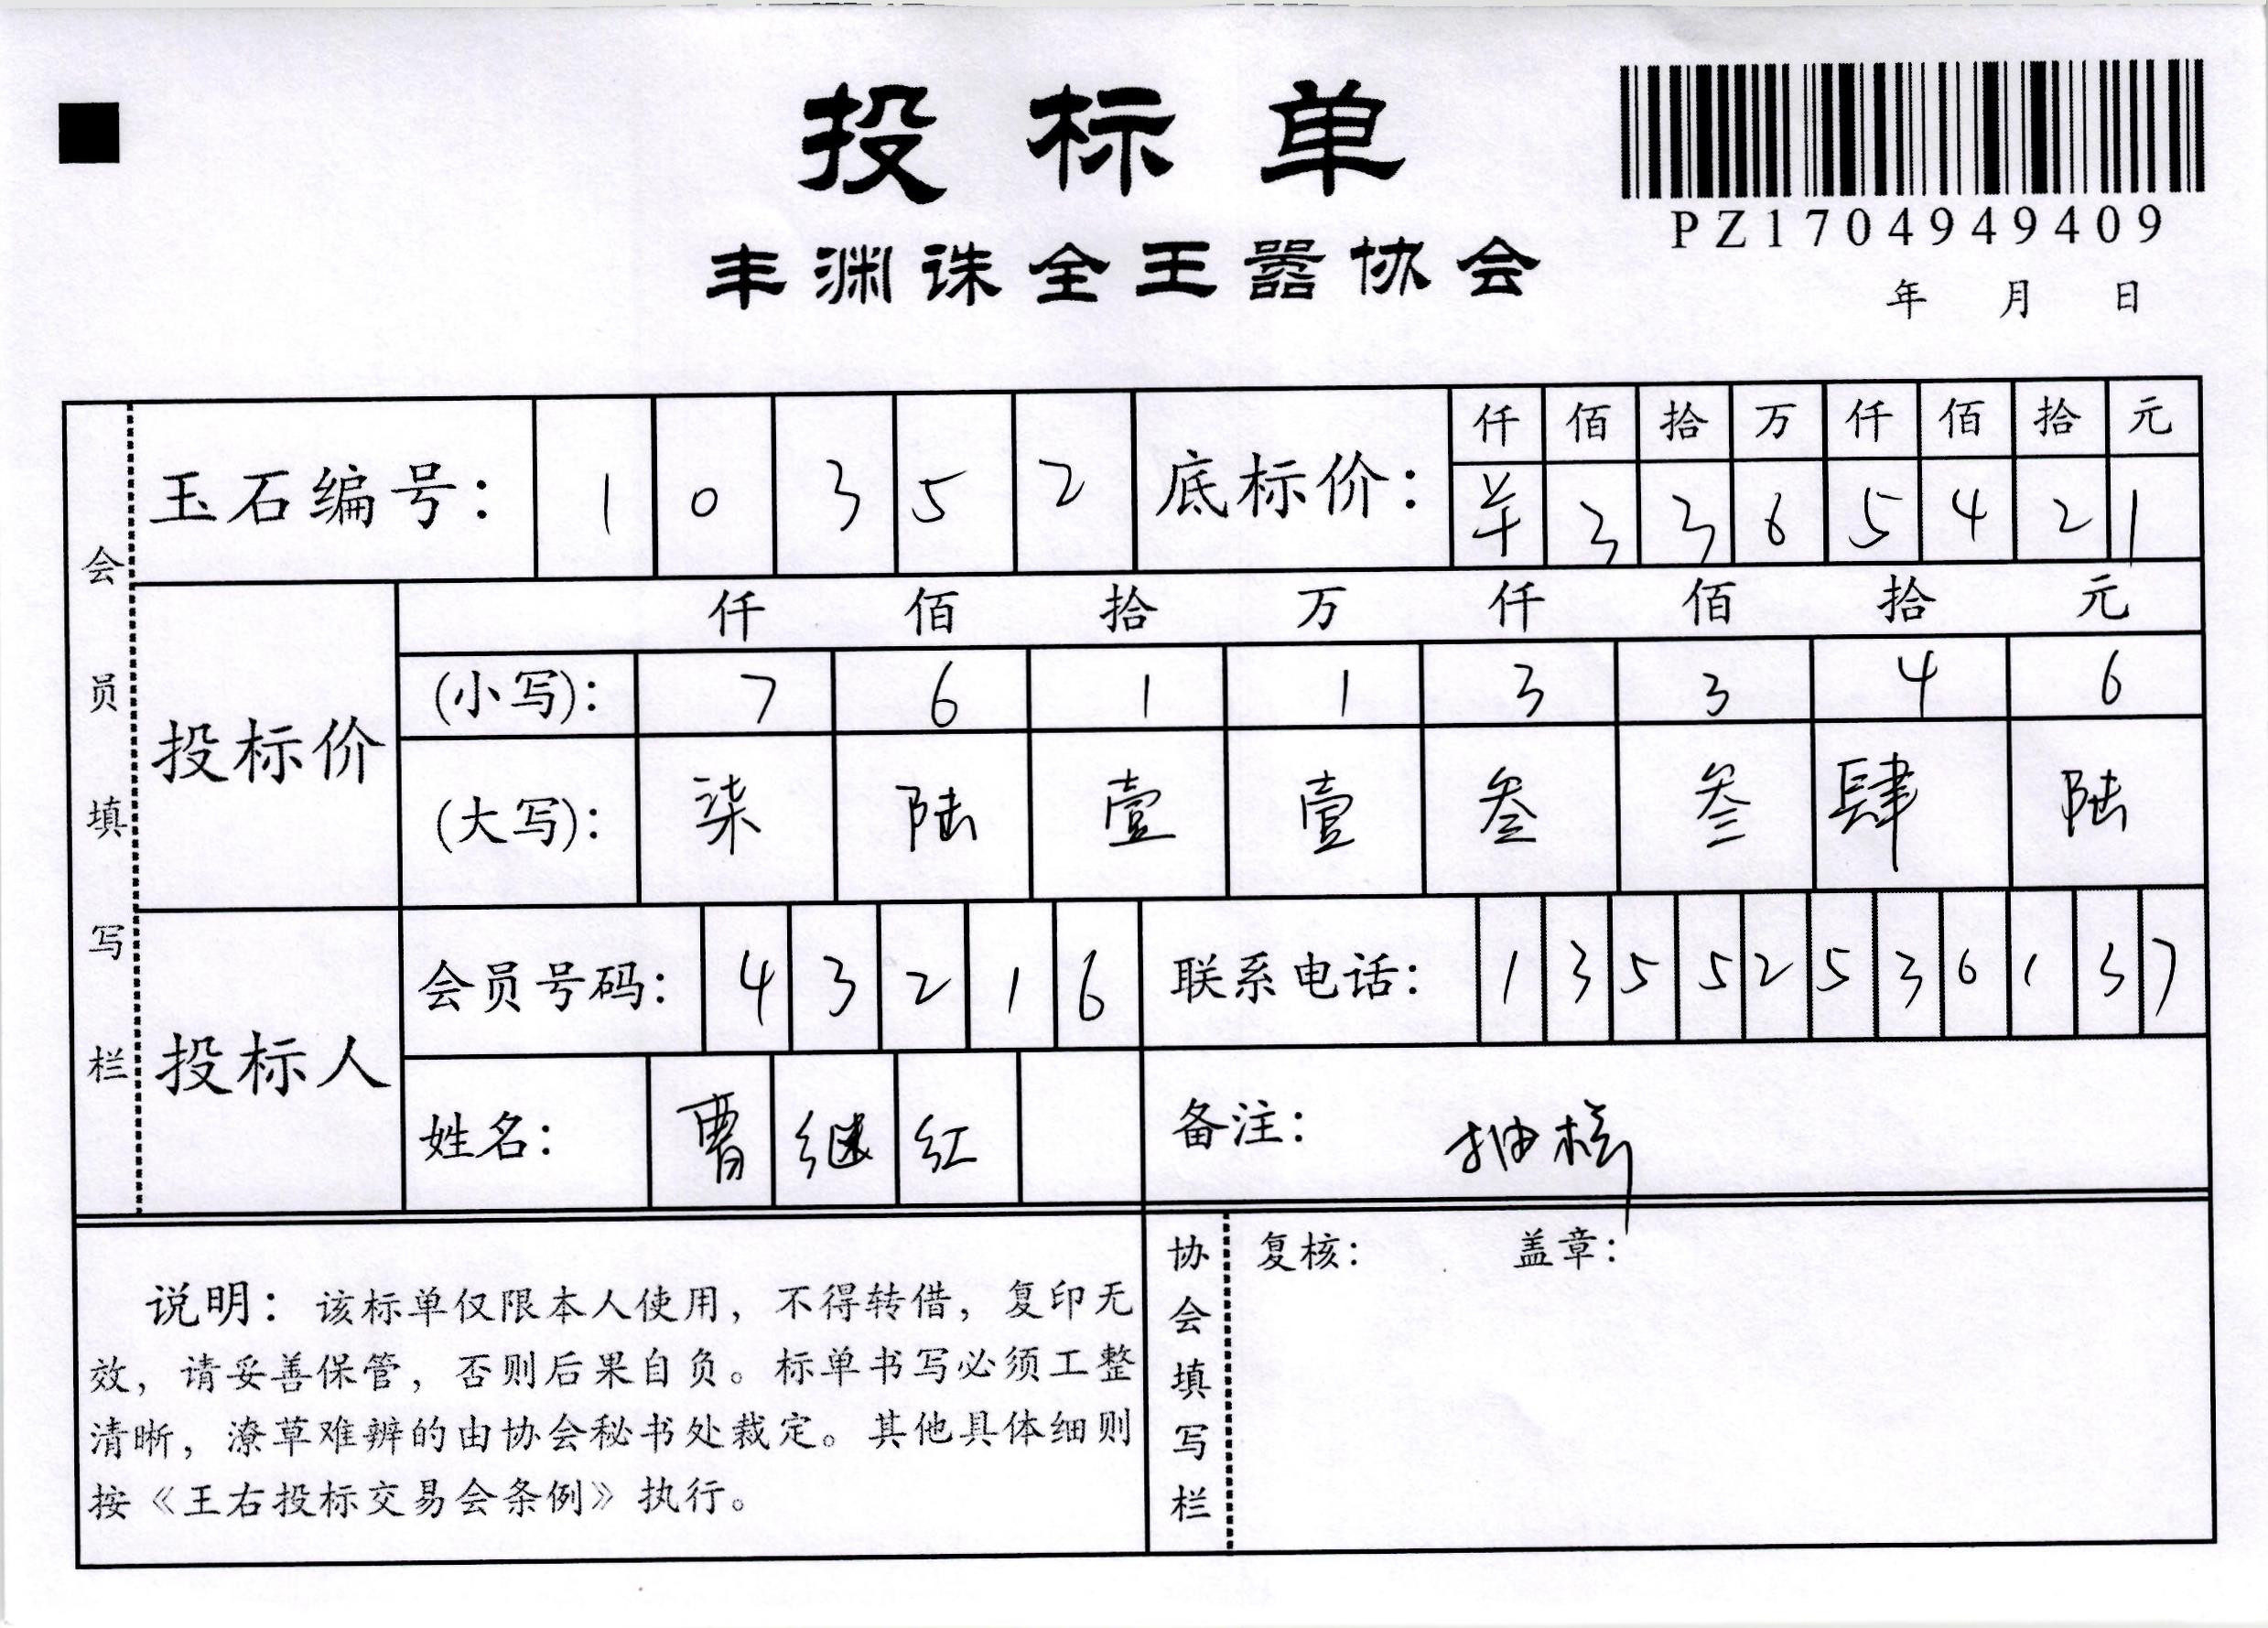 投标单
PZ1704949409
丰渊诛全王嚣协会
年 月 日
会员填写栏
玉石编号: 1 0 3 5 2 底标价:
仟 佰 拾 万 仟 佰 拾 元
¥ 3 3 6 5 4 2 1
投标价
仟 佰 拾 万 仟 佰 拾 元
(小写): 7 6 1 1 3 3 4 6
(大写): 柒 陆 壹 壹 叁 叁 肆 陆
投标人
会员号码: 4 3 2 1 6 联系电话: 1 3 5 5 2 5 3 6 1 3 7
姓名: 曹 继 红 备注:
说明: 该标单仅限本人使用, 不得转借, 复印无
效, 请妥善保管, 否则后果自负。标单书写必须工整
清晰, 潦草难辨的由协会秘书处裁定。其他具体细则
按《王右投标交易会条例》执行。
协会填写栏
复核: 盖章: